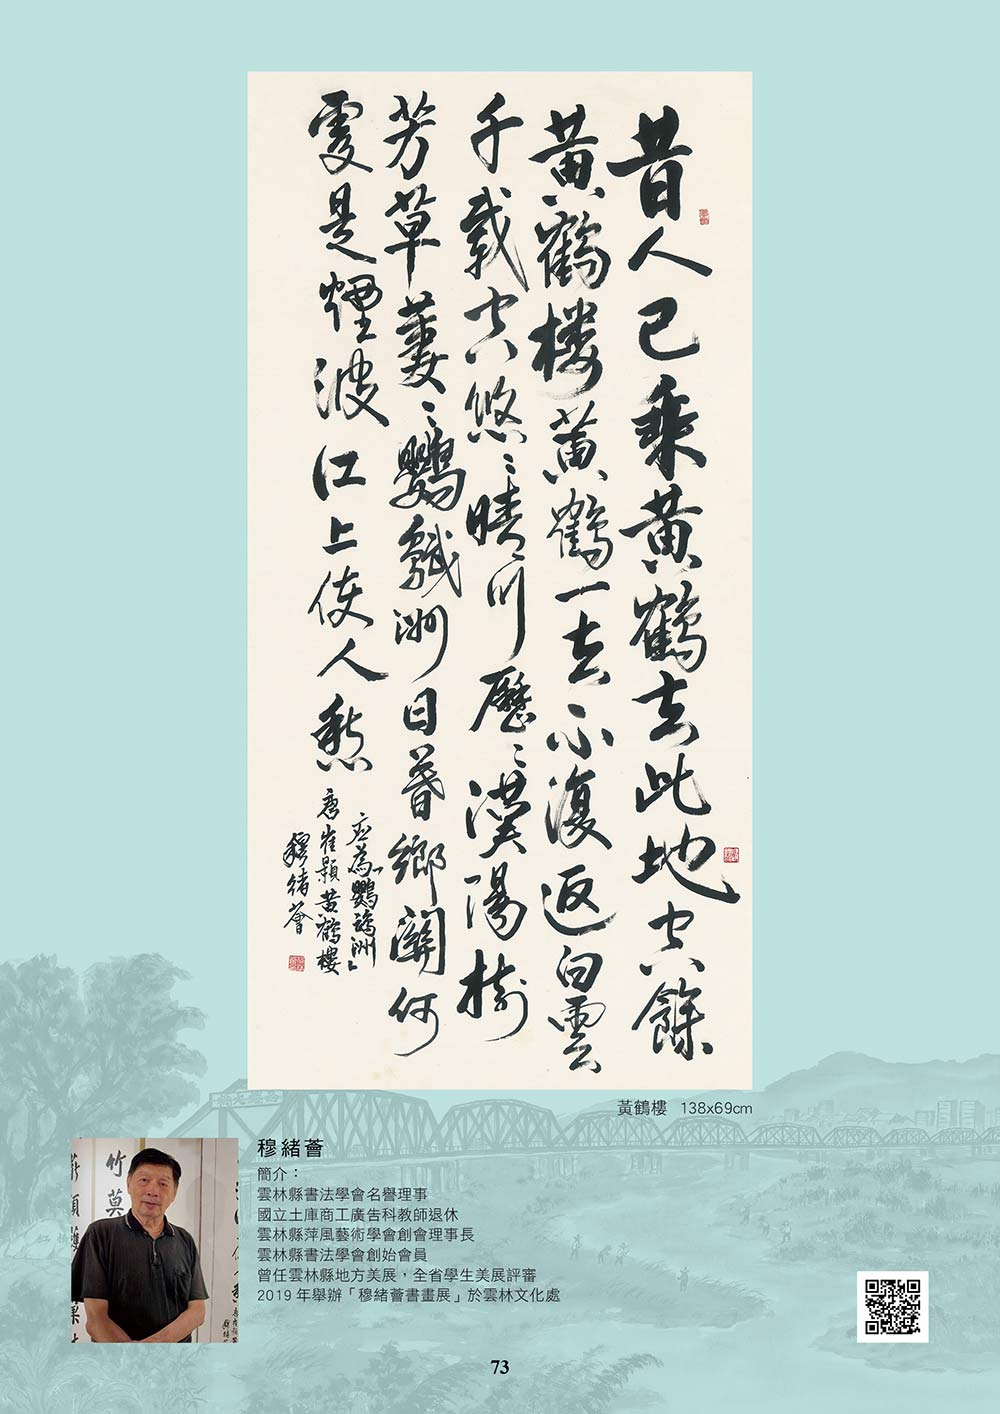 昔人已乘黃鶴去此地空餘
黃鶴楼黃鶴一去不復返白雲
千載空悠〻晴川歷〻漢陽樹
芳草萋〻鸚鵡洲日暮鄉關何
處是煙波江上使人愁
应為「鸚鵡洲」
唐崔顥黃鶴樓
穆緒薈
黃鶴樓 138x69cm
穆緒薈
簡介：
雲林縣書法學會名譽理事
國立土庫商工廣告科教師退休
雲林縣萍風藝術學會創會理事長
雲林縣書法學會創始會員
曾任雲林縣地方美展，全省學生美展評審
2019 年舉辦「穆緒薈書畫展」於雲林文化處
竹莫
73